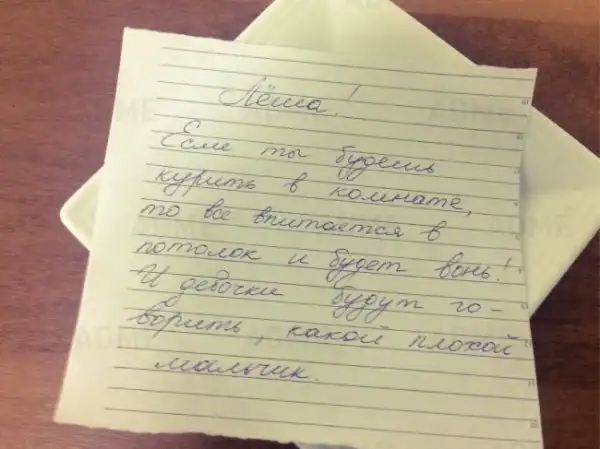 Лёша!
Если ты будешь
курить в комнате,
то все впитается в
потолок и будет вонь!
И девочки будут го-
ворить, какой плохой
мальчик.
ADME
ADME
ADME
ADME